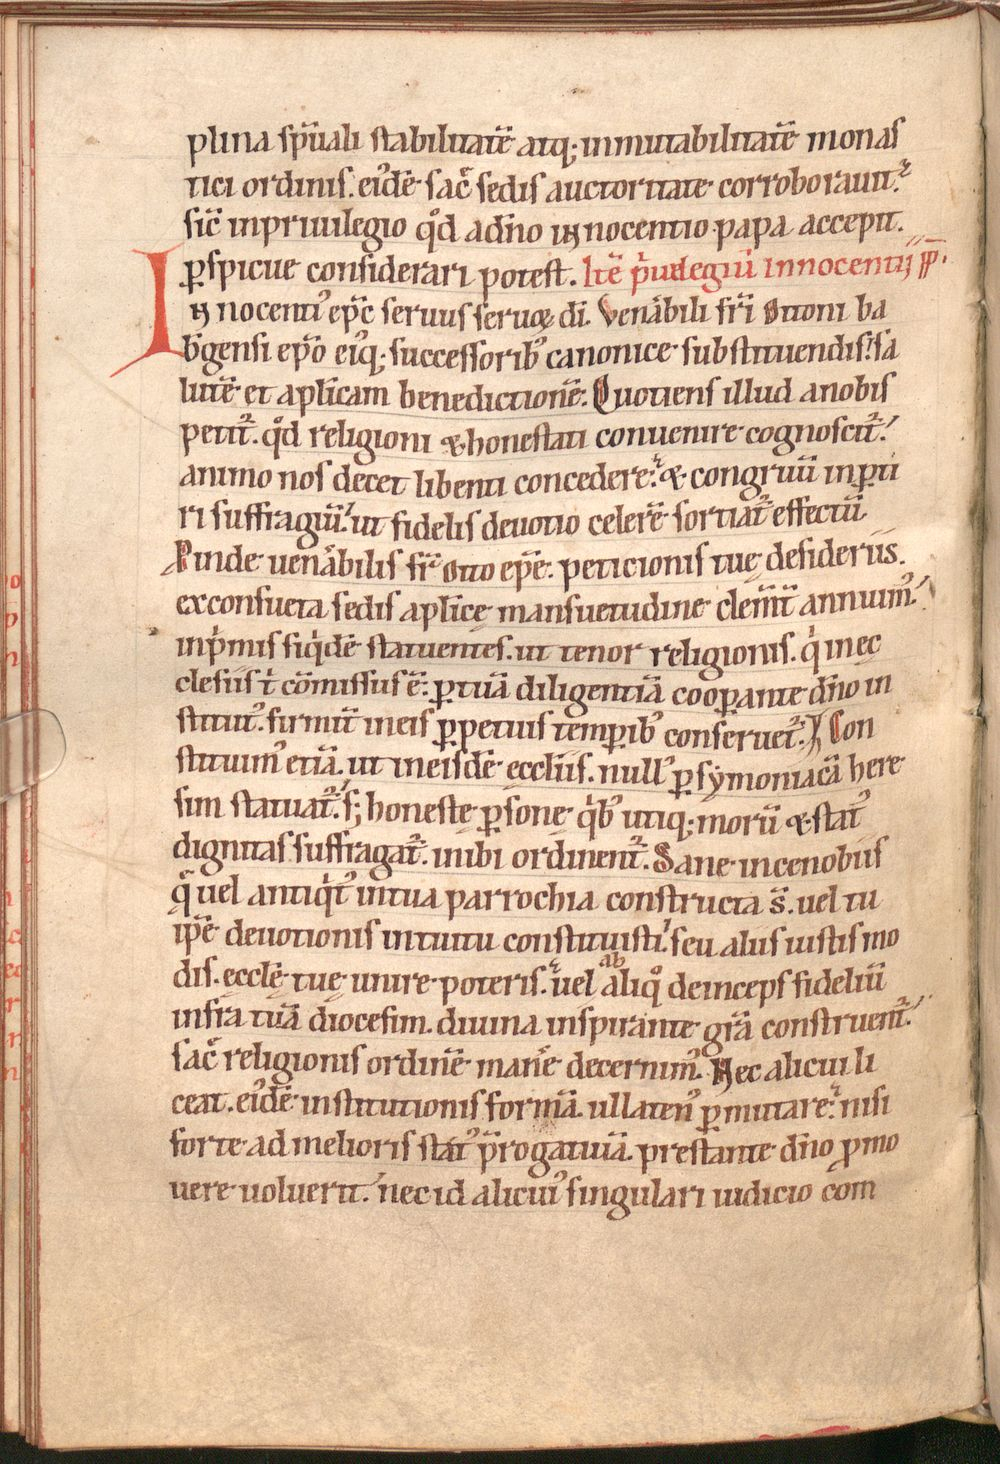 plina sp̄uali stabilitatē atq; inmutabilitatē monas
tici ordinis. eiꝰdē sac̄ sedis auctoritate corroborauit.
sic̄ inpriuilegio qͦd adn̄o innocentio papa accepit.
ꝑspicue considerari potest. Itē p̄uilegiū innocentij pp̄.
Innocentiꝰ ep̄c seruus seruoꝝ di. Venābili fr̄i ottoni ba
b̄gensi ep̄o eiꝰq; successoribꝰ canonice substituendis. sa
lutē et aplicam benedictionē. Quotiens illud anobis
petit᷑. qͦd religioni &honestati conuenire cognoscit᷑.
animo nos decet libenti concedere. & congruū inpeti
ri suffragiū. ut fidelis deuotio celerē sortiat᷑ effectū.
Proinde uenābilis fr̄ otto ep̄e. peticionis tuę desideriis.
exconsueta sedis aplicę mansuetudine clem̄t annuimꝰ.
inp̄mis siqͥdē statuentes. ut tenor religionis. qͥ inec
clesiis t͛ cōmissus ē. ꝑ tuā diligentiā cooꝑante dn̄o in
stitutꝰ. firmit̄ ineis ꝑpetuis temꝑibꝰ conseruet᷑. Con
stituimꝰ etiā. ut ineisdē eccliis. nullꝰ ꝑ sẏmoniacā here
sim statuat᷑. s; honeste ꝑsone qͥbꝰ utiq; morū & statꝰ
dignitas suffragat᷑. inibi ordinent᷑. Sane incenobiis
q̄ uel antiqͥtꝰ intua parrochia constructa s̄. uel tu
ip̄e deuotionis intuitu constituisti. seu aliis iustis mo
dis. ecclę̄ tuę unire poteris. uel ab aliqͦ deinceps fideliū
infra tuā diocesim. diuina inspirante gr̄a construent᷑.
sac̄ religionis ordinē manē decernimꝰ. Nec alicui li
ceat. eiꝰdē institutionis formā. ullatenꝰ ꝑmutare. nisi
forte ad melioris statꝰ p̄rogatiuā. prestante dn̄o ꝓmo
uere uoluerit. nec id alicuiꝰ singulari iudicio com